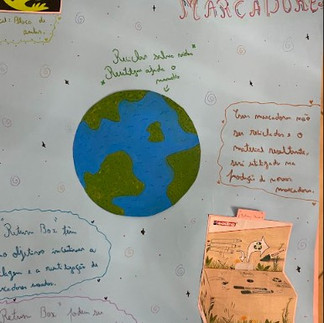 MARCADORE
Reciclar salva vidas
Reutilizar ajuda o
mundo
Esses marcadores irão
ser reciclados e o
material resultante,
será utilizado na
produção de novos
marcadores.
Return Box" tem
mo objetivo incentivar a
clagem e a reutilização de
rcadores usados.
Return Box" podem ser